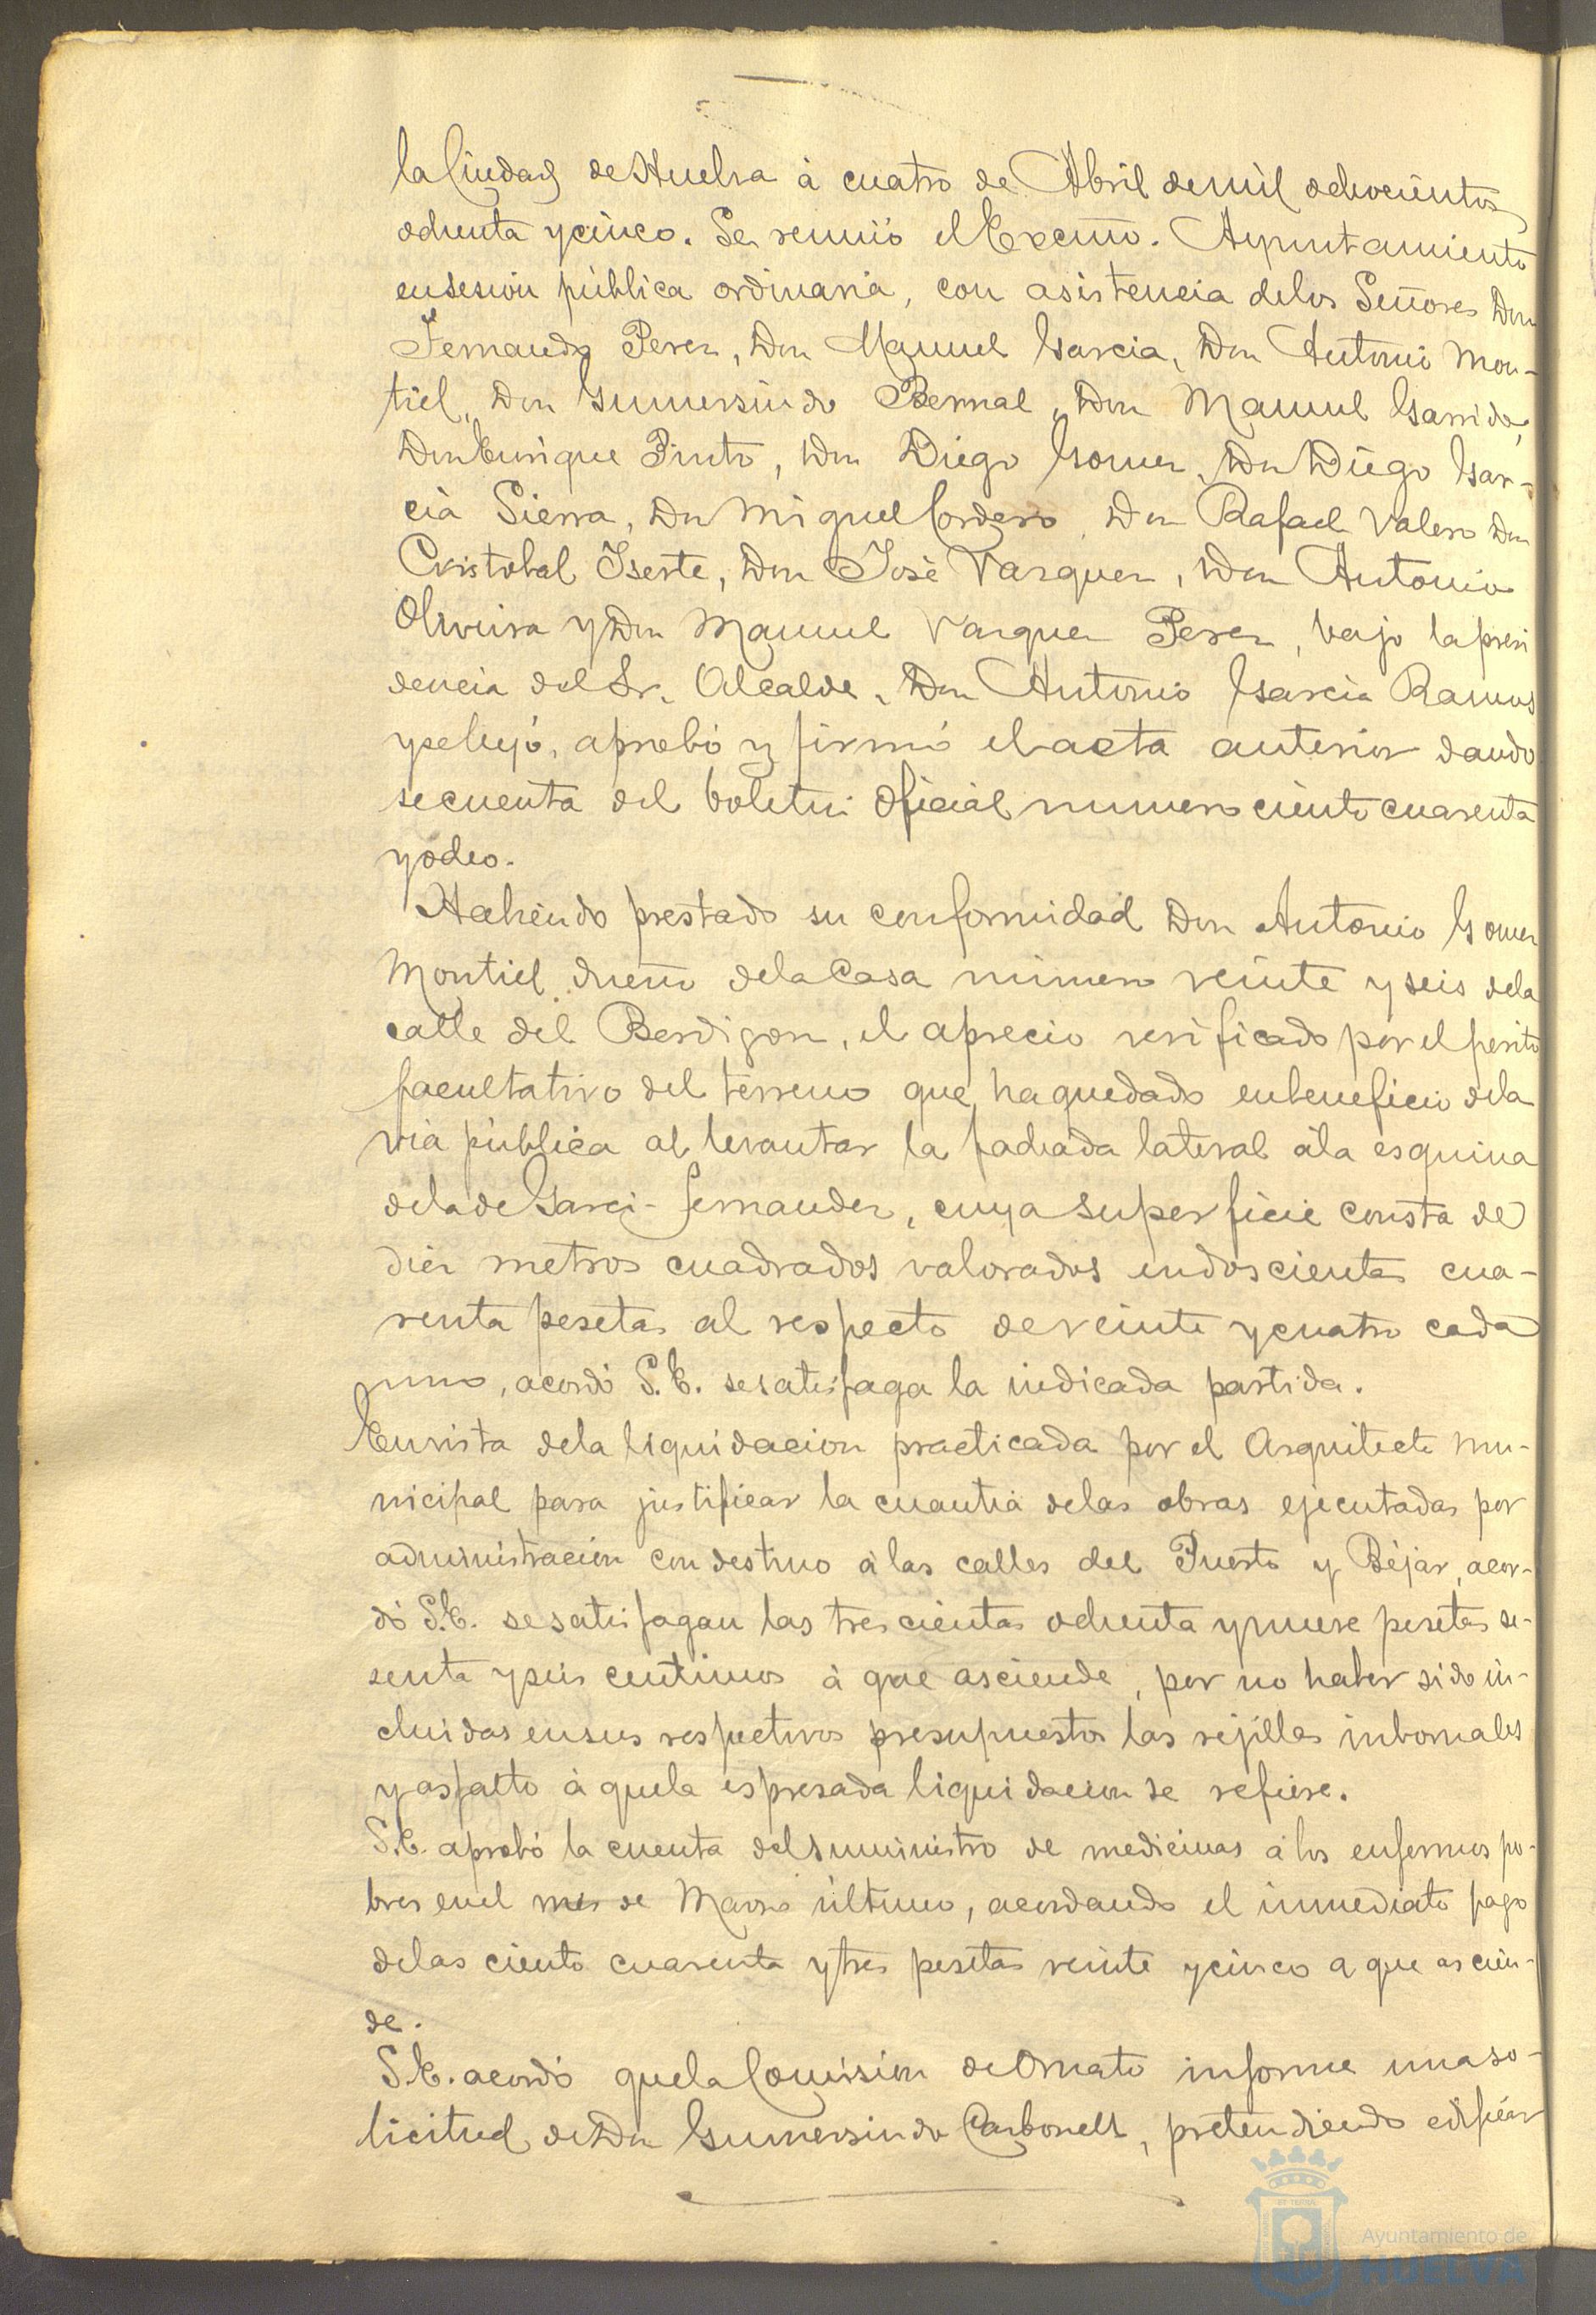 la Ciudad de Huelva à cuatro de Abril de mil ochocientos
ochenta y cinco. Se reunió el Excmo. Ayuntamiento
en sesion pública ordinaria, con asistencia de los Señores Don
Fernando Perez, Don Manuel Garcia, Don Antonio Mon-
tiel, Don Gumersindo Bernal, Don Manuel Garrido,
Don Enrique Pinto, Don Diego Gomez, Dn Diego Gar-
cia Sierra, Dn Miguel Cordero, Don Rafael Valero Don
Cristobal Iserte, Don José Vazquez, Don Antonio
Oliveira y Don Manuel Vazquez Perez, bajo la presi
dencia del Sr. Alcalde, Don Antonio Garcia Ramos
y se leyó, aprobó y firmó el acta anterior dando
se cuenta del boletin Oficial numero ciento cuarenta
y ocho.
Habiendo prestado su conformidad Don Antonio Gomez
Montiel, dueño de la Casa número veinte y seis de la
calle del Berdigon, el aprecio verificado por el perito
facultativo del terreno que ha quedado en beneficio de la
via pública al levantar la fachada lateral á la esquina
de la de Garci-Fernandez, cuya superficie consta de
diez metros cuadrados valorados en doscientas cua-
renta pesetas al respecto de veinte y cuatro cada
uno, acordó S.E. se satisfaga la indicada partida.
En vista de la liquidacion practicada por el Arquitecto mu-
nicipal para justificar la cuantia de las obras ejecutadas por
administracion con destino á las calles del Puerto y Béjar, acor-
dó S.E. se satisfagan las trescientas ochenta y nueve pesetas se-
senta y seis centimos á que asciende, por no haber sido in-
cluidas en sus respectivos presupuestos las rejillas imbornales
y asfalto á que la espresada liquidacion se refiere.
S.E. aprobó la cuenta del suministro de medicinas á los enfermos po-
bres en el mes de Marzo último, acordando el inmediato pago
de las ciento cuarenta y tres pesetas veinte y cinco a que ascien-
de.
S.E. acordó que la Comision de Ornato informe una so-
licitud de Dn Gumersindo Carbonell, pretendiendo edificar
Ayuntamiento de
HUELVA